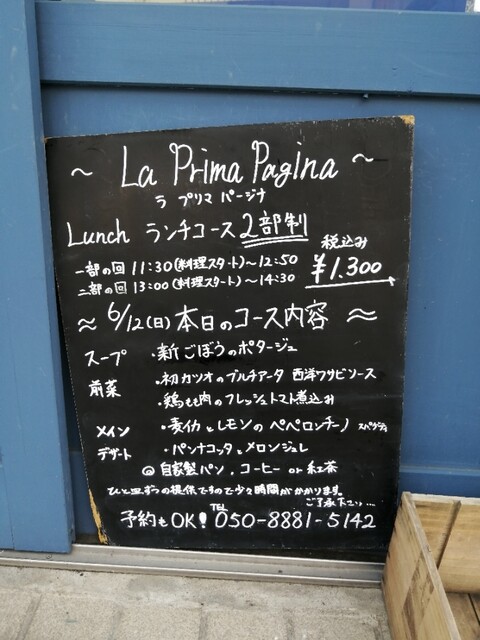 ~ La Prima Pagina ~
ラ プリマ パージナ
Lunch ランチコース 2部制
税込み
一部の回 11:30(料理スタート)~12:50
¥1.300
二部の回 13:00(料理スタート)~14:30
≈ 6/12(日)本日のコース内容 ≈
スープ ・新ごぼうのポタージュ
前菜 ・初カツオのブルチアータ 西洋ワサビソース
・鶏もも肉のフレッシュトマト煮込み
メイン ・麦イカとレモンのペペロンチーノ スパゲティ
デザート ・パンナコッタとメロンジュレ
@ 自家製パン、コーヒー or 紅茶
ひと皿ずつの提供ですので少々時間がかかります。
ご了承下さい...
予約もOK! TEL 050-8881-5142